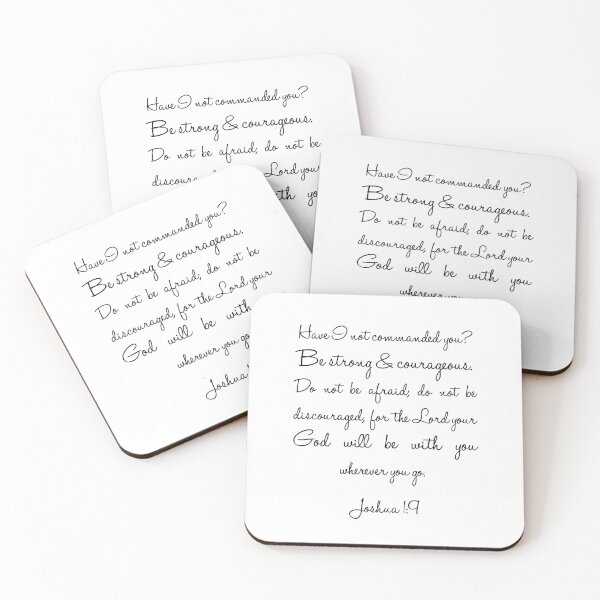 Have I not commanded you?
Be strong & courageous.
Do not be afraid; do not be
Lord your
you
Have I not commanded you?
Be strong & courageous.
Do not be afraid; do not be
discouraged, for the Lord your
God will be with you
wherever
Have I not commanded you?
Be strong & courageous.
Do not be afraid; do not be
discouraged, for the Lord your
God will be with
wherever you go
Joshua
Have I not commanded you?
Be strong & courageous.
Do not be afraid; do not be
discouraged, for the Lord your
God will be with you
wherever you go.
Joshua 1:9